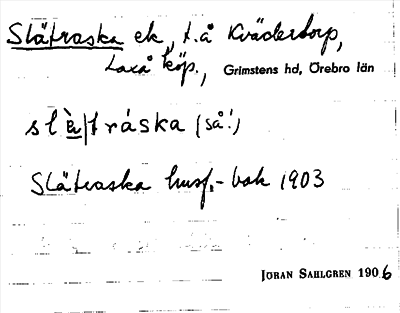 Slätraska ek, t.å Kvädertorp,
Laxå köp., Grimstens hd, Örebro län
slẁ|tráska (så!)
Slätraska husf.-bok 1903
JÖRAN SAHLGREN 1906